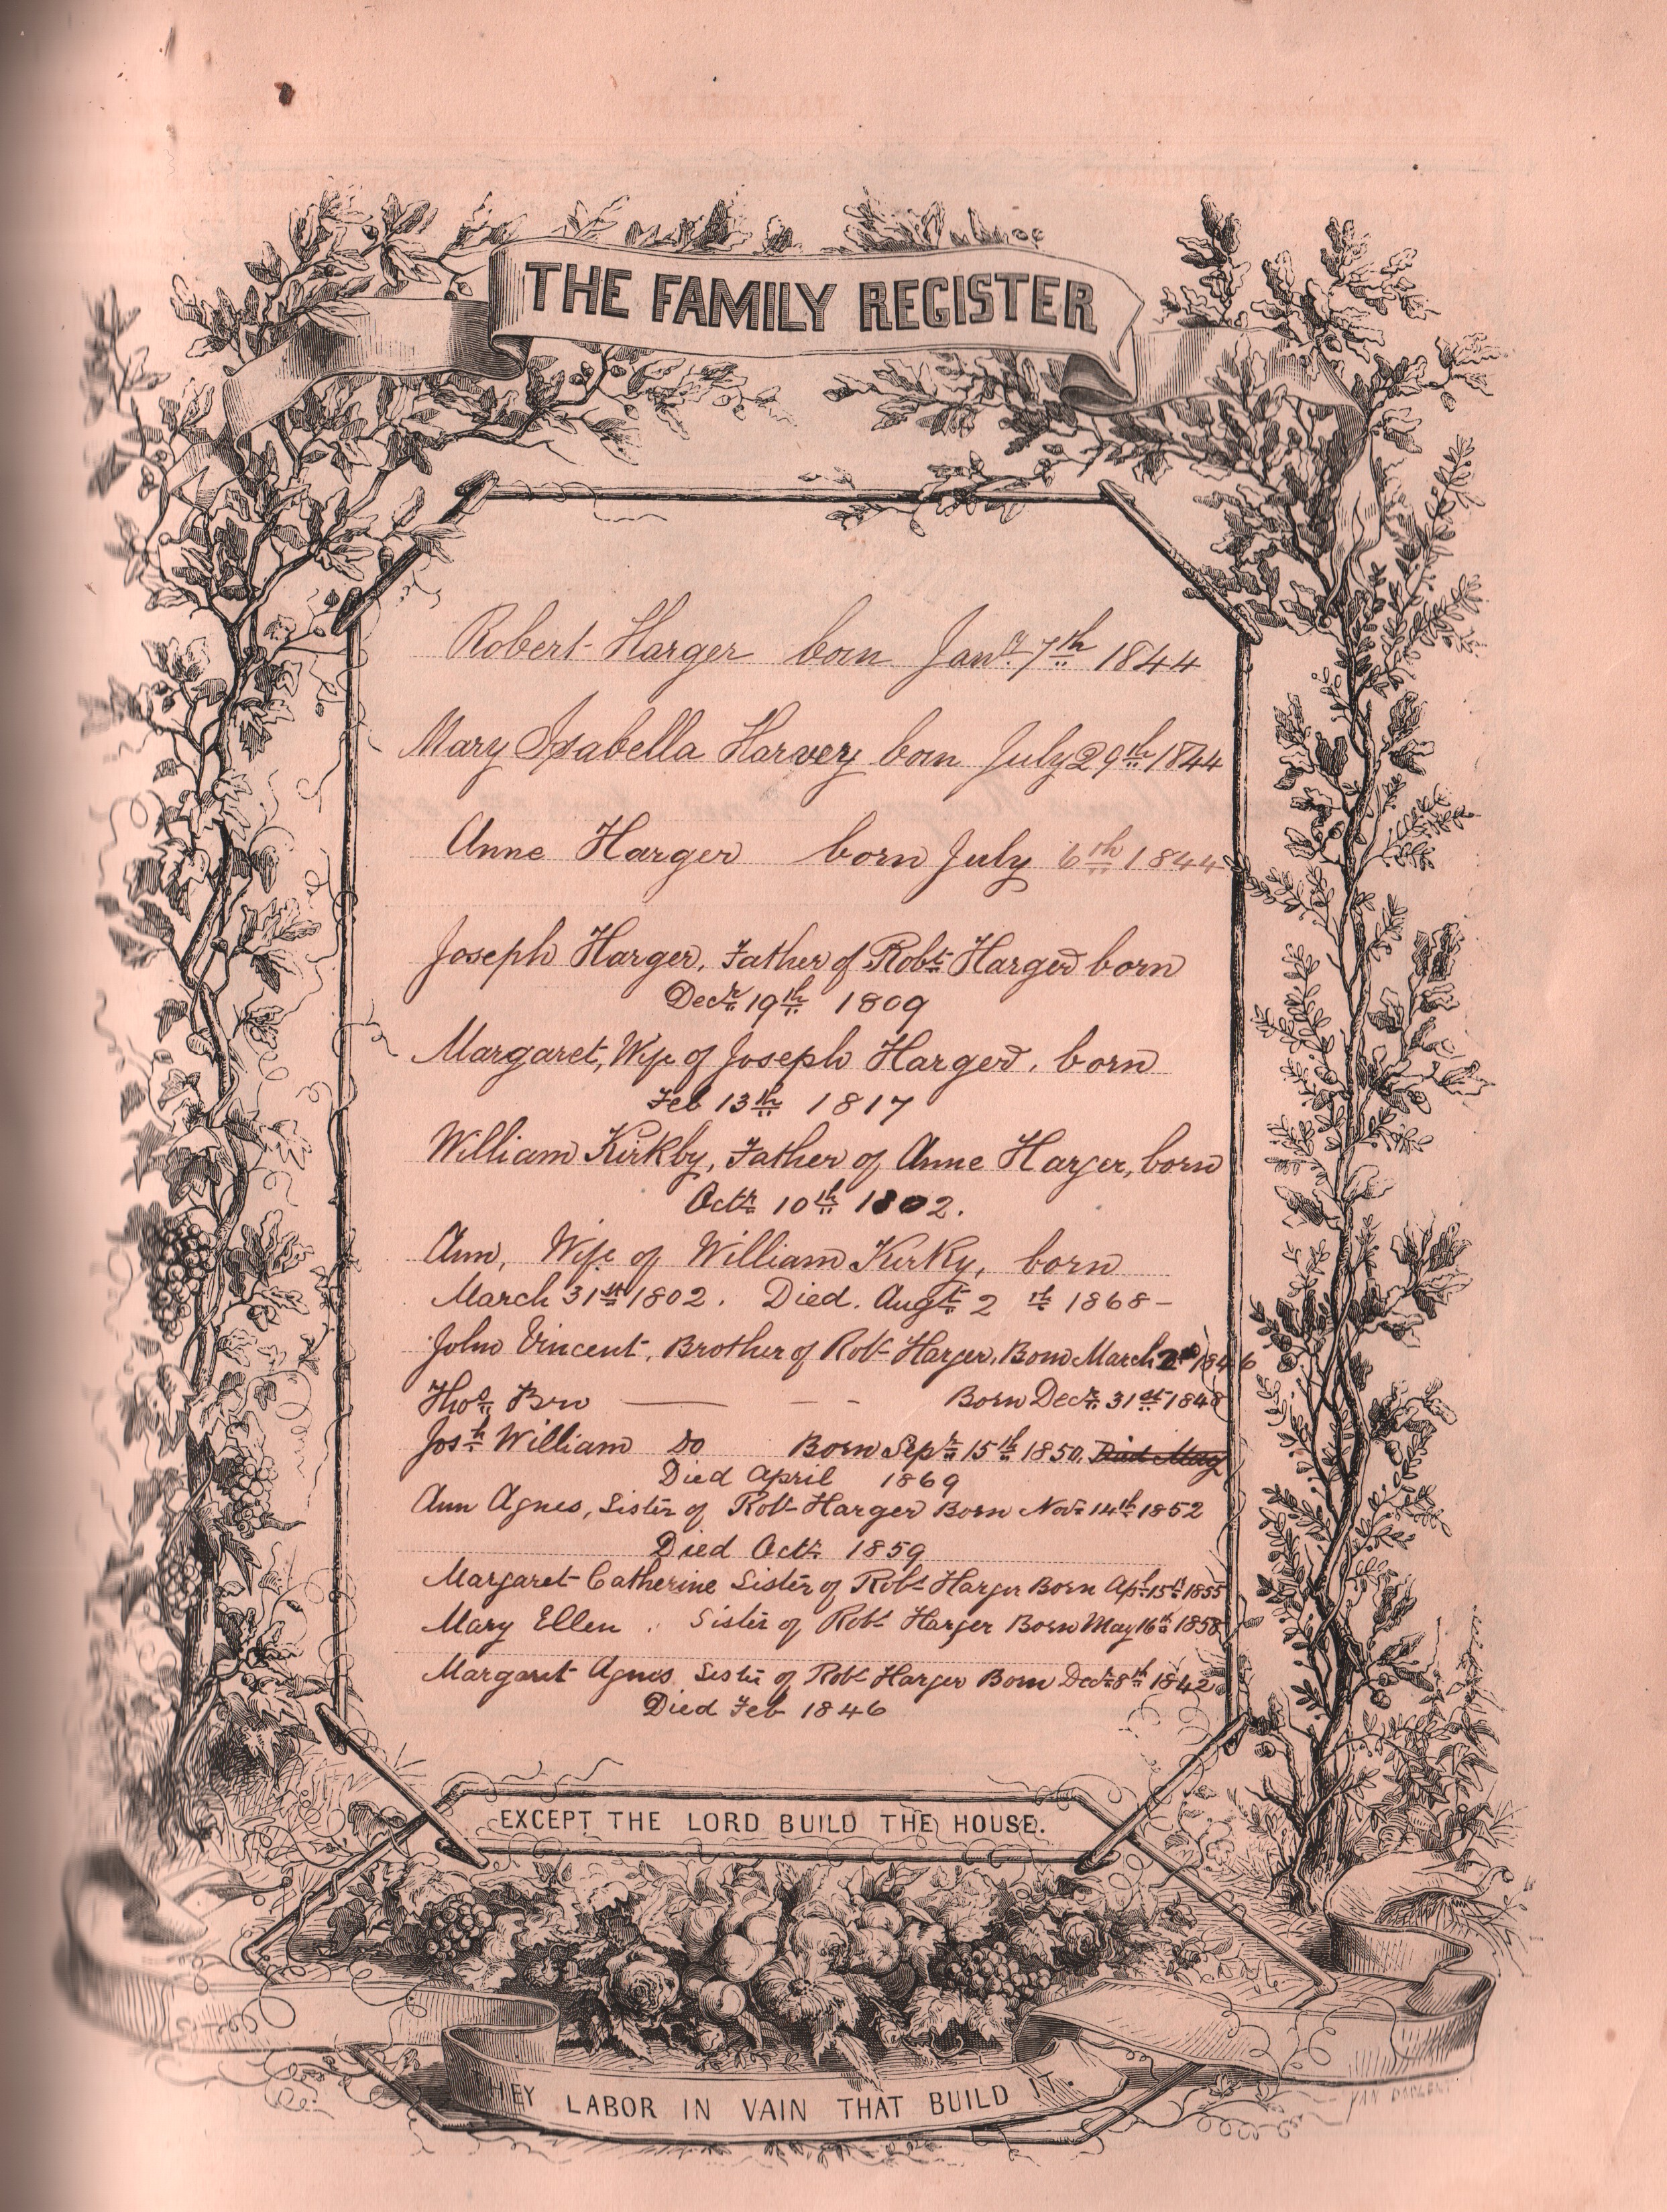 THE FAMILY REGISTER
Robert Harger born Janr 7th 1844
Mary Isabella Harvey born July 29th 1844
Anne Harger born July 6th 1844
Joseph Harger, Father of Robt Harger born
Decr 19th 1809
Margaret, Wife of Joseph Harger, born
Feb 13th 1817
William Kirkby, Father of Anne Harger, born
Octr 10th 1802.
Ann, Wife of William Kirky, born
March 31st 1802. Died. Augt 2 th 1868-
John Vincent, Brother of Robt Harger, Born March 2nd 1846
Thos Bro — - - Born Decr 31st 1848
Josh William Do Born Sepr 15th 1850. Died May
Died April 1869
Ann Agnes, Sister of Robt Harger Born Novr 14th 1852
Died Octr 1859
Margaret Catherine Sister of Robt Harger Born Apl 15th 1855
Mary Ellen . Sister of Robt Harger Born May 16th 1858
Margaret Agnes. Sister of Robt Harger Born Decr 8th 1842
Died Feb 1846
EXCEPT THE LORD BUILD THE HOUSE.
THEY LABOR IN VAIN THAT BUILD IT.
YAN DARGENT